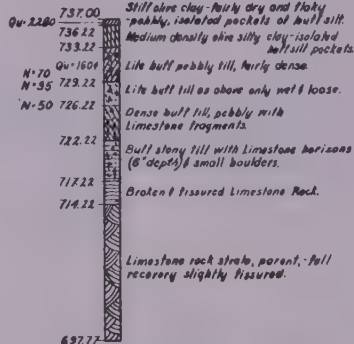 737.00 Stiff olive clay-fairly dry and flaky
Qu=2280 -pebbly, isolated pockets of buff silt.
736.22 Medium density olive silty clay-isolated
733.22 buff silt pockets.
Qu=160+ Lite buff pebbly till, fairly dense.
N=70
N=95 729.22 Lite buff till as above only wet & loose.
N=50 726.22 Dense buff till, pebbly with
Limestone fragments.
722.22 Buff stony till with Limestone horizons
(6" depth) & small boulders.
717.22 Broken & fissured Limestone Rock.
714.22
Limestone rock strata, parent, -full
recovery slightly fissured.
697.77